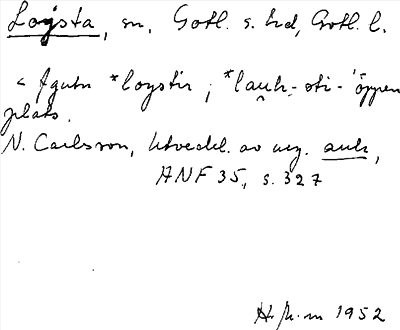 Lojsta, sn, Gotl. s. hd, Gotl. l.
< fgutn *loystir, *lauh-sti- 'öppen
plats.
N. Carlsson, Utveckl. av urg. auh,
ANF 35, s. 327
1952